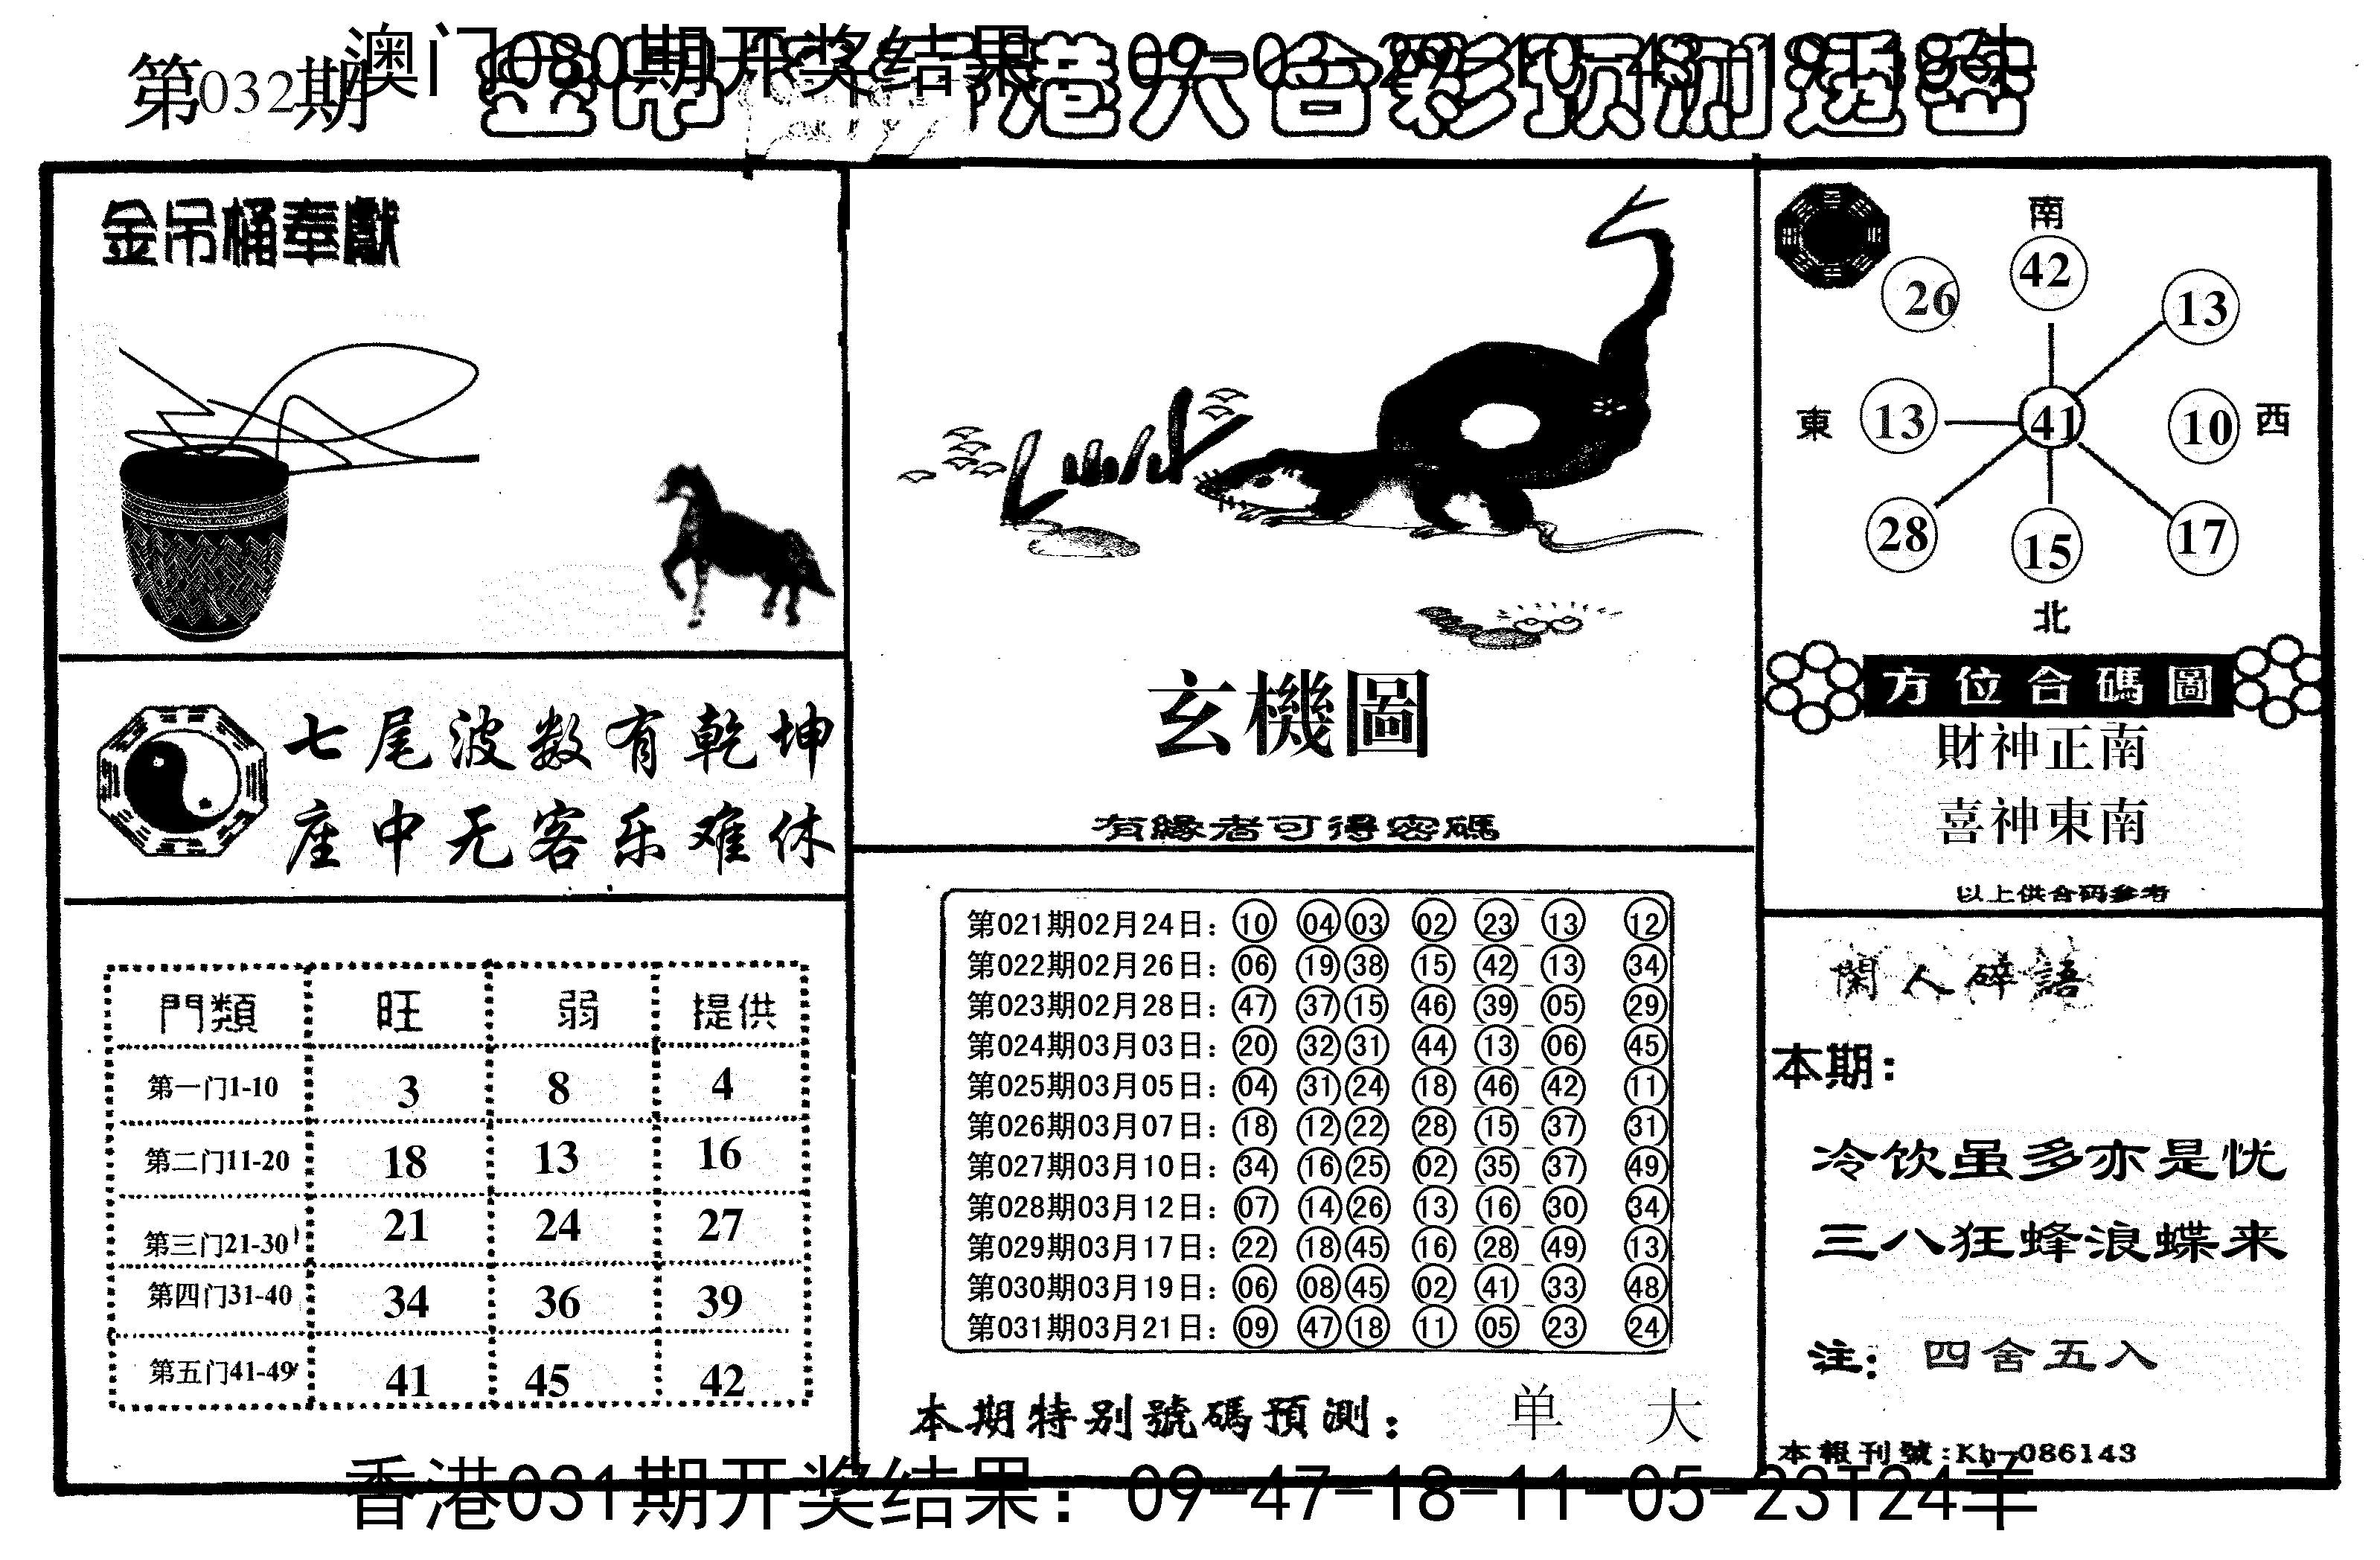 第032期
澳门080期开奖结果
港六合彩预测透密
金吊桶奉獻
七尾波数有乾坤
座中无客乐难休
門類 旺 弱 提供
第一门1-10 3 8 4
第二门11-20 18 13 16
第三门21-30 21 24 27
第四门31-40 34 36 39
第五门41-49 41 45 42
玄機圖
有緣者可得密碼
第021期02月24日：10 04 03 02 23 13 12
第022期02月26日：06 19 38 15 42 13 34
第023期02月28日：47 37 15 46 39 05 29
第024期03月03日：20 32 31 44 13 06 45
第025期03月05日：04 31 24 18 46 42 11
第026期03月07日：18 12 22 28 15 37 31
第027期03月10日：34 16 25 02 35 37 49
第028期03月12日：07 14 26 13 16 30 34
第029期03月17日：22 18 45 16 28 49 13
第030期03月19日：06 08 45 02 41 33 48
第031期03月21日：09 47 18 11 05 23 24
本期特别號碼預测： 单 大
南
26 42 13
東 13 41 10 西
28 15 17
北
方位合碼圖
財神正南
喜神東南
以上供合码参考
閑人碎語
本期：
冷饮虽多亦是忧
三八狂蜂浪蝶来
注：四舍五入
本報刊號:Kh-086143
香港031期开奖结果：09-47-18-11-05-23T24羊